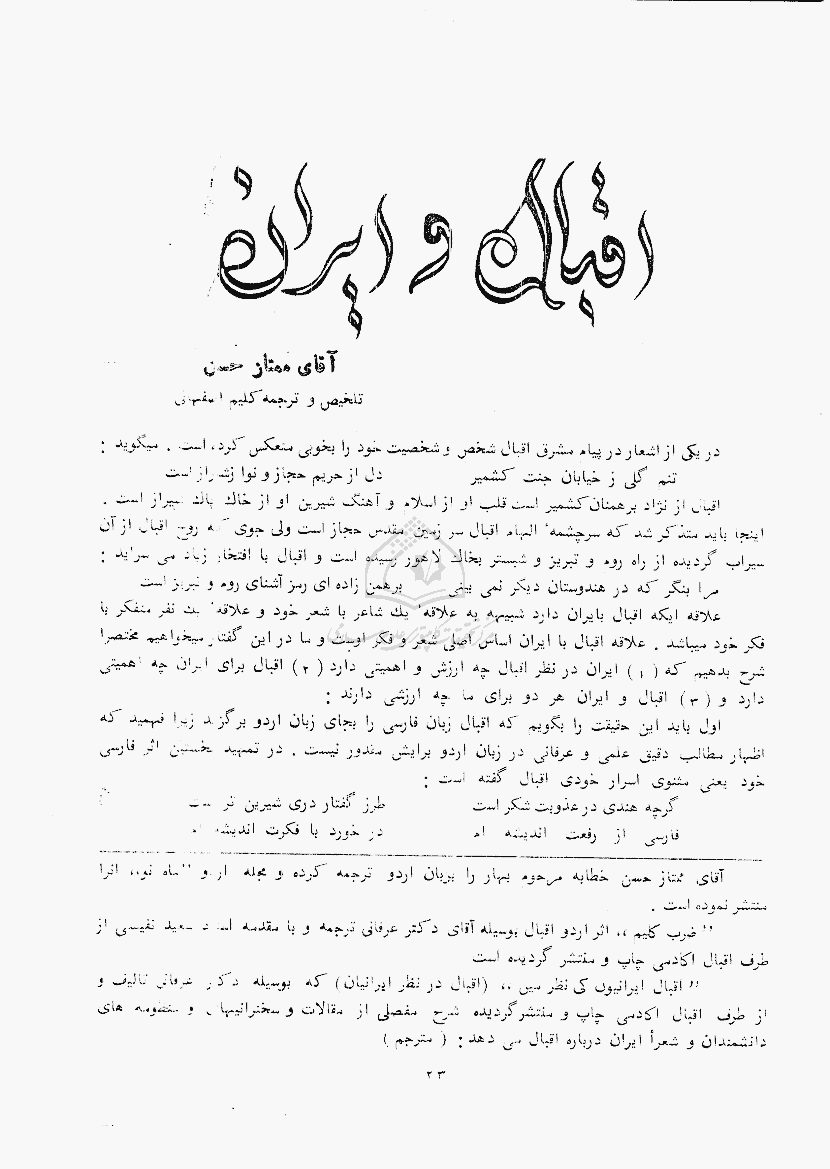 اقبال و ایران
آقای ممتاز حسن
تلخیص و ترجمه کلیم اصفهانی
در یکی از اشعار در پیام مشرق اقبال شخص و شخصیت خود را بخوبی منعکس کرده است . میگوید :
تنم گلی ز خیابان جنت کشمیر دل از حریم حجاز و نوا ز شیراز است
اقبال از نژاد برهمنان کشمیر است قلب او از اسلام و آهنگ شیرین او از خاك پاك شیراز است .
اینجا باید متذکر شد که سرچشمهٔ الهام اقبال سر زمین مقدس حجاز است ولی جوی که روح اقبال از آن
سیراب گردیده از راه روم و تبریز و شبستر بخاك لاهور رسیده است و اقبال با افتخار زیاد می سراید :
مرا بنگر که در هندوستان دیگر نمی بینی برهمن زاده ای رمز آشنای روم و تبریز است
علاقه ایکه اقبال بایران دارد شبیهه به علاقهٔ یك شاعر با شعر خود و علاقهٔ یك نفر متفکر با
فکر خود میباشد . علاقه اقبال با ایران اساس اصلی شعر و فکر اوست و ما در این گفتار میخواهیم مختصرا
شرح بدهیم که ( ۱ ) ایران در نظر اقبال چه ارزش و اهمیتی دارد ( ۲ ) اقبال برای ایران چه اهمیتی
دارد و ( ۳ ) اقبال و ایران هر دو برای ما چه ارزشی دارند :
اول باید این حقیقت را بگویم که اقبال زبان فارسی را بجای زبان اردو برگزید زیرا فهمید که
اظهار مطالب دقیق علمی و عرفانی در زبان اردو برایش مقدور نیست . در تمهید نخستین اثر فارسی
خود یعنی مثنوی اسرار خودی اقبال گفته است :
گرچه هندی در عذوبت شکر است طرز گفتار دری شیرین تر است
فارسی از رفعت اندیشه ام در خورد با فکرت اندیشه ام
آقای ممتاز حسن خطابه مرحوم بهار را بزبان اردو ترجمه کرده و مجله اردو ”ماه نو،، انرا
منتشر نموده است .
” ضرب کلیم ،، اثر اردو اقبال بوسیله آقای دکتر عرفانی ترجمه و با مقدمه استاد سعید نفیسی از
طرف اقبال اکادمی چاپ و منتشر گردیده است
” اقبال ایرانیوں کی نظر میں ،، (اقبال در نظر ایرانیان) که بوسیله دکتر عرفانی تالیف و
از طرف اقبال اکادمی چاپ و منتشر گردیده شرح مفصلی از مقالات و سخنرانیهای و منظومه های
دانشمندان و شعرأ ایران درباره اقبال می دهد : ( مترجم )
۲۳